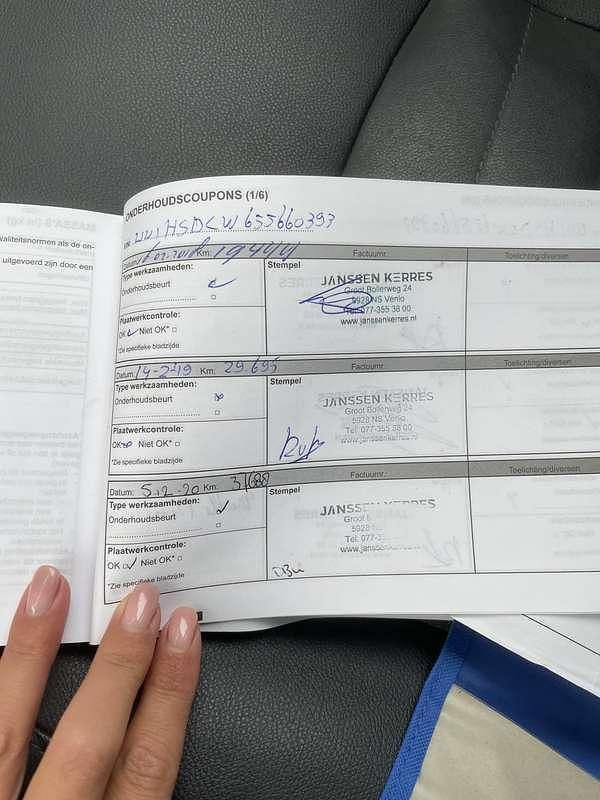 MASSA'S (in kg)
waliteitsnormen als de on-
uitgevoerd zijn door een
ONDERHOUDSCOUPONS (1/6)
655660393
Km. 19444 Factuurnr. Toelichting/diversen
Type werkzaamheden:
Onderhoudsbeurt
Plaatwerkcontrole:
OK Niet OK*
*Zie specifieke bladzijde
Stempel
JANSSEN KERRES
Groot Bollerweg 24
5928 NS Venlo
Tel. 077-355 38 00
www.janssenkerres.nl
Datum: 14-2-19 Km. 29.695 Factuurnr. Toelichting/diversen
Type werkzaamheden:
Onderhoudsbeurt
Plaatwerkcontrole:
OK Niet OK*
*Zie specifieke bladzijde
Stempel
JANSSEN KERRES
Groot Bollerweg 24
5928 NS Venlo
Tel. 077-355 38 00
www.janssenkerres.nl
Datum: 5-2-20 Km. 37688 Factuurnr. Toelichting/diversen
Type werkzaamheden:
Onderhoudsbeurt
Plaatwerkcontrole:
OK Niet OK*
*Zie specifieke bladzijde
Stempel
JANSSEN KERRES
Groot B
5928
Tel. 077-
www.janssen